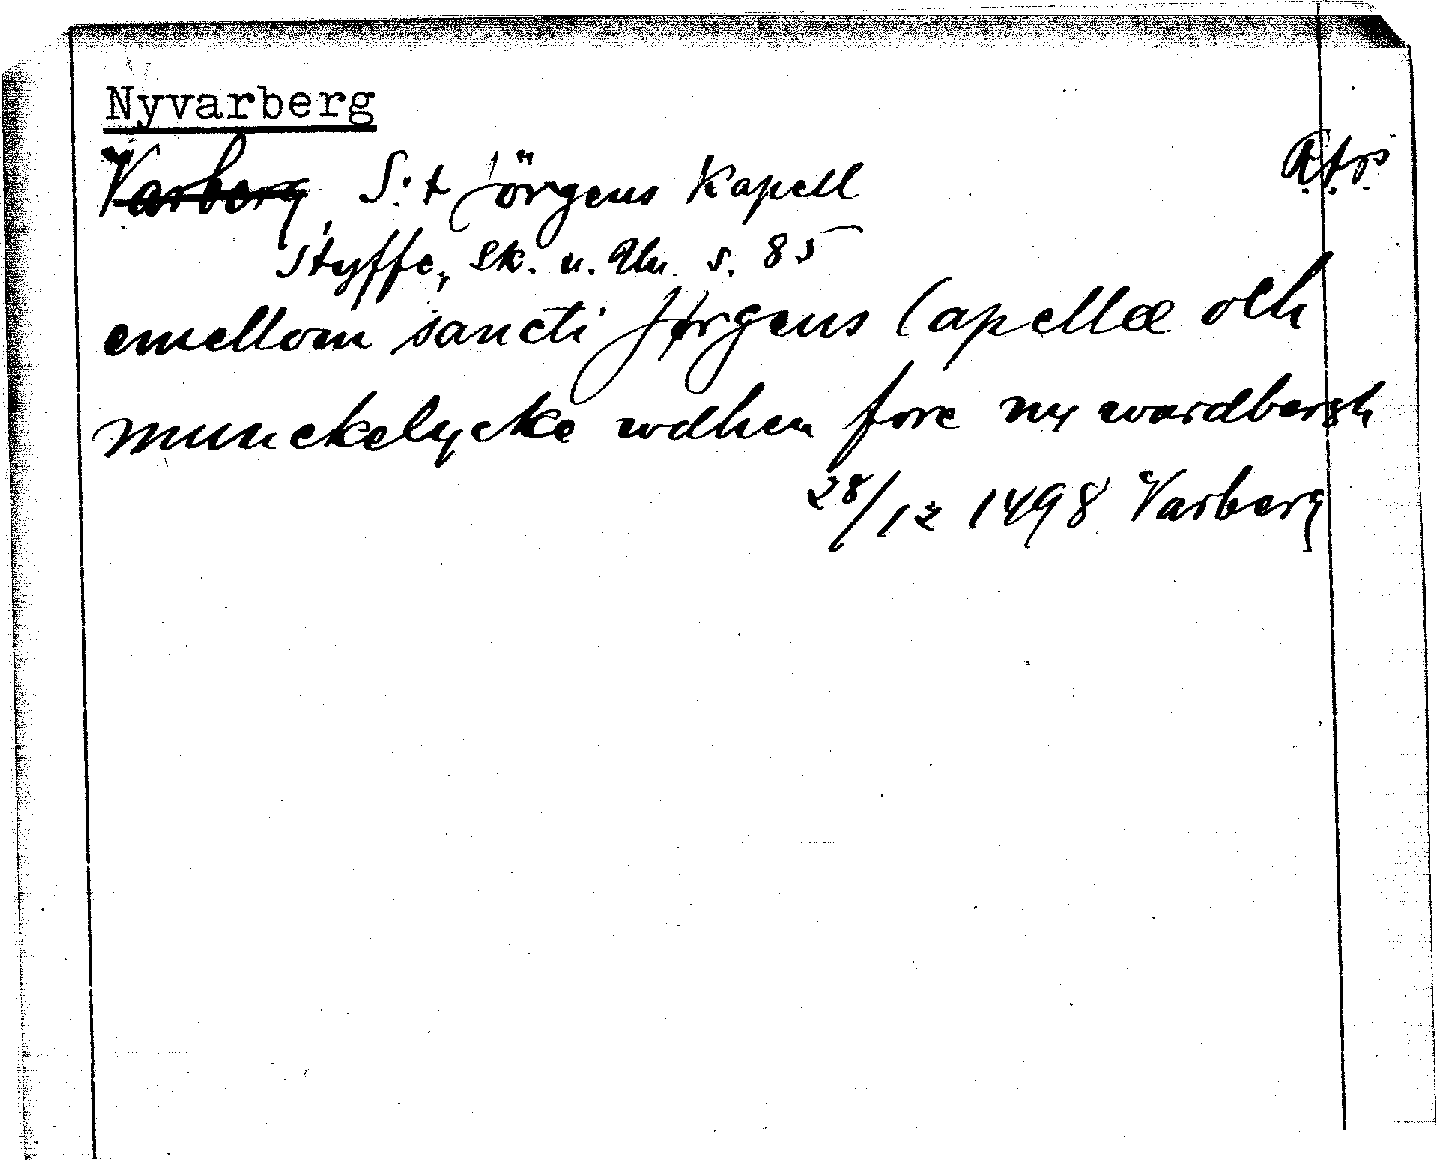 Nyvarberg
Varberg, S:t Jörgens Kapell
Styffe, Sk. u. Un. s. 85
emellom sancti Jørgens Capellæ och
munckelycke wdhen fore ny wardbergh
28/12 1498 Varberg